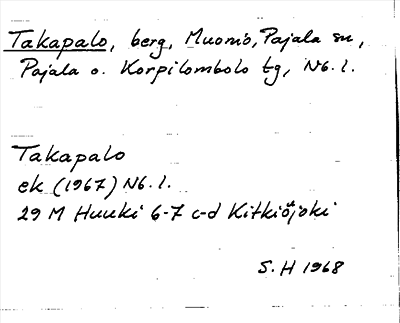 Takapalo, berg, Muonio, Pajala sn,
Pajala o. Korpilombolo tg, Nb. l.
Takapalo
ek (1967) Nb. l.
29 M Huuki 6-7 c-d Kitkiöjoki
S. H 1968